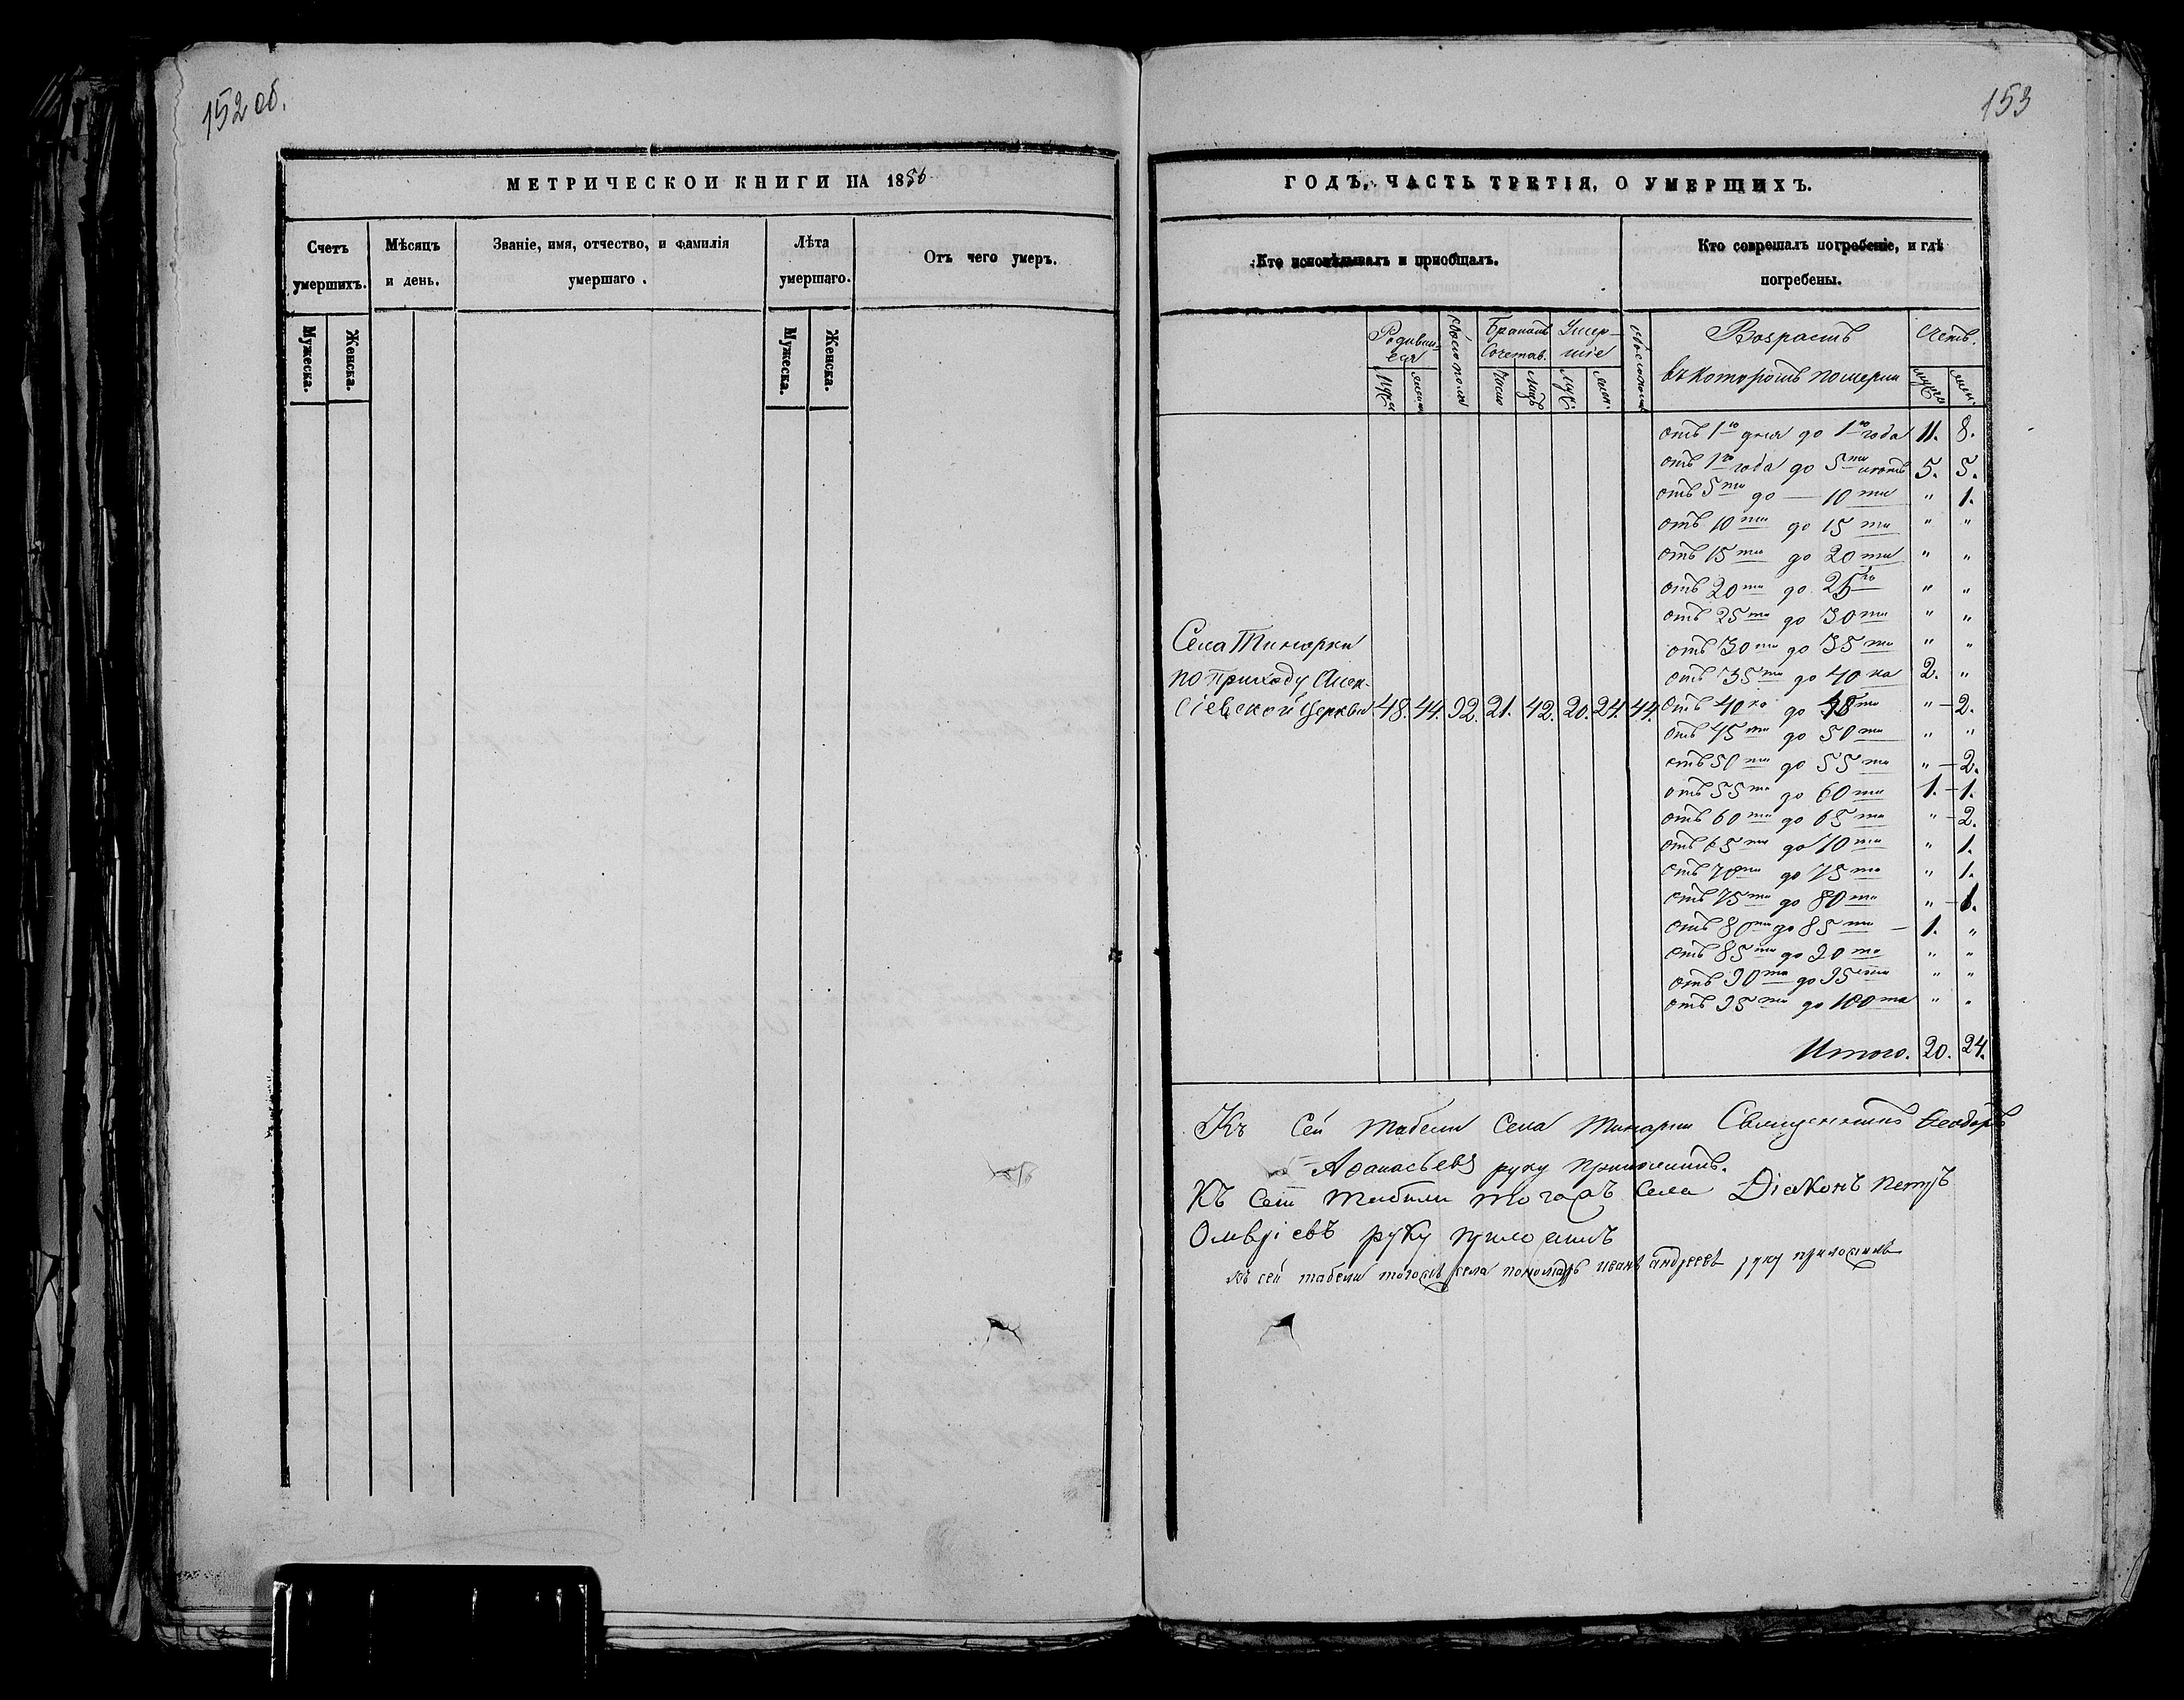 152 об.
МЕТРИЧЕСКОИ КНИГИ НА 1856
Счетъ умершихъ.
Мѣсяцъ и день.
Званіе, имя, отчество, и фамилія умершаго.
Лѣта умершаго.
Отъ чего умеръ.
Мужеска.
Женска.
Мужеска.
Женска.
153
ГОДЪ, ЧАСТЬ ТРЕТІЯ, О УМЕРШИХЪ.
Кто исповѣдывалъ и пріобщалъ.
Кто соврешалъ погребеніе, и гдѣ погребены.
Родивш=
еся
Обоего пола
Бракомъ
Сочетав.
Умер—
шіе
Возрастъ
въ которомъ померли
Счетъ.
отъ 1го дня до 1го года 11. 8.
отъ 1го года до 5ти лѣтъ 5. 5.
отъ 5ти до — 10ти " 1.
отъ 10ти до 15ти " "
отъ 15ти до 20ти " "
отъ 20ти до 25ти " "
отъ 25ти до 30ти " "
отъ 30ти до 35ти " "
отъ 35ти до 40ка 2. "
отъ 40ка до 45ти " — 2.
отъ 45ти до 50ти " "
отъ 50ти до 55ти " — 2.
отъ 55ти до 60ти 1. — 1.
отъ 60ти до 65ти " — 2.
отъ 65ти до 70ти " 1.
отъ 70ти до 75ти " 1.
отъ 75ти до 80ти " — 1.
отъ 80ти до 85ти — 1. "
отъ 85ти до 90та " "
отъ 90та до 95ти " "
отъ 95ти до 100та " "
Итого. 20. 24.
Села Тинарки
по приходу Алек-
сіевской Церкви 48. 44. 92. 21. 42. 20. 24. 44.
Къ Сей табели села Тинарки Священникъ Феодоръ
Афанасьевъ руку приложилъ.
Къ Сей табели тогожъ села Діаконъ Петръ
руку приложилъ
къ сей табели тогожъ села пономарь иванъ андреевъ руку приложилъ